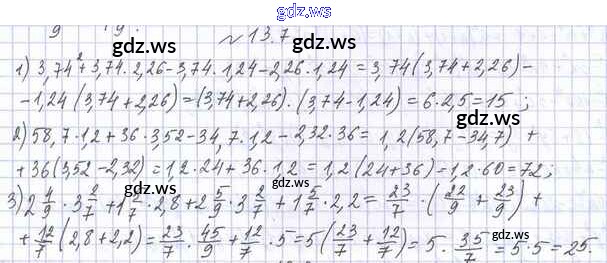 gdz.ws
9 19.
№13.7
gdz.ws
1) 3,74² + 3,74 · 2,26 - 3,74 · 1,24 - 2,26 · 1,24 = 3,74 (3,74 + 2,26) -
- 1,24 (3,74 + 2,26) = (3,74 + 2,26) · (3,74 - 1,24) = 6 · 2,5 = 15 ;
gdz.ws gdz.ws
2) 58,7 · 1,2 + 36 · 3,52 - 34,7 · 1,2 - 2,32 · 36 = 1,2 (58,7 - 34,7) +
+ 36 (3,52 - 2,32) = 1,2 · 24 + 36 · 1,2 = 1,2 (24 + 36) = 1,2 · 60 = 72 ;
gdz.ws gdz.ws
3) 2 4/9 · 3 2/7 + 1 5/7 · 2,8 + 2 5/9 · 3 2/7 + 1 5/7 · 2,2 = 23/7 · (22/9 + 23/9) +
+ 12/7 (2,8 + 2,2) = 23/7 · 45/9 + 12/7 · 5 = 5 (23/7 + 12/7) = 5 · 35/7 = 5 · 5 = 25.
gdz.ws gdz.ws